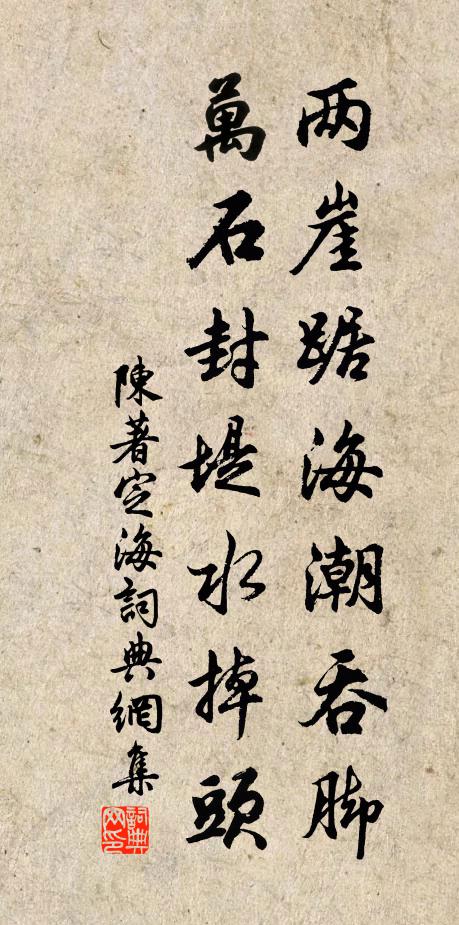 两崖踞海潮吞脚
萬石封堤水掉頭
陳著定海詞典網集
詞典網印